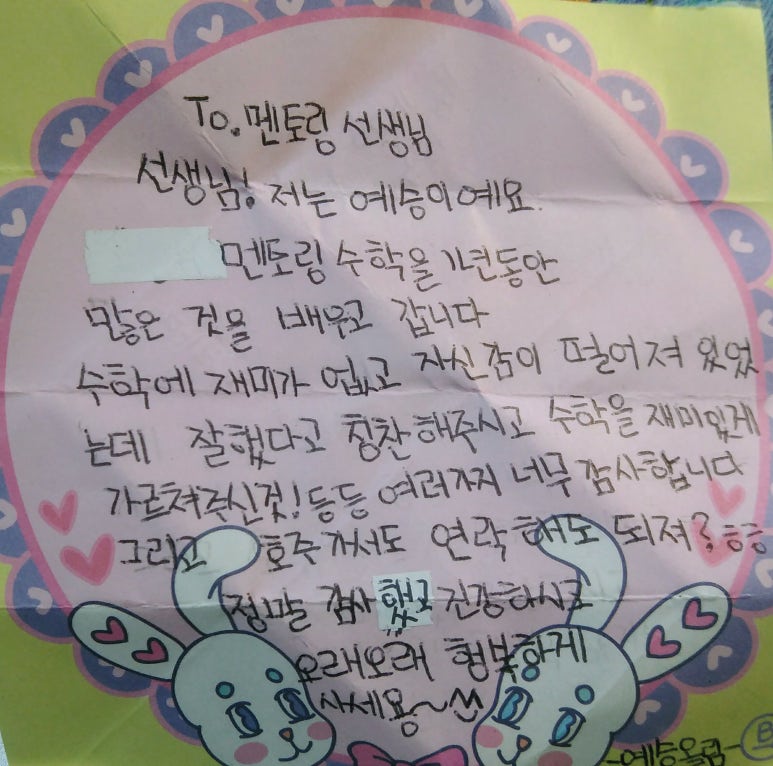 To. 멘토링 선생님
선생님! 저는 예승이예요.
멘토링 수학을 1년동안
많은 것을 배우고 갑니다
수학에 재미가 없고 자신감이 떨어져 있었
는데 잘했다고 칭찬해주시고 수학을 재미있게
가르쳐주신것! 등등 여러가지 너무 감사합니다
그리고 호주가서도 연락해도 되져? ㅎㅎ
정말 감사했고 건강하시고
오래오래 행복하게
사세용~^^
-예승올림-